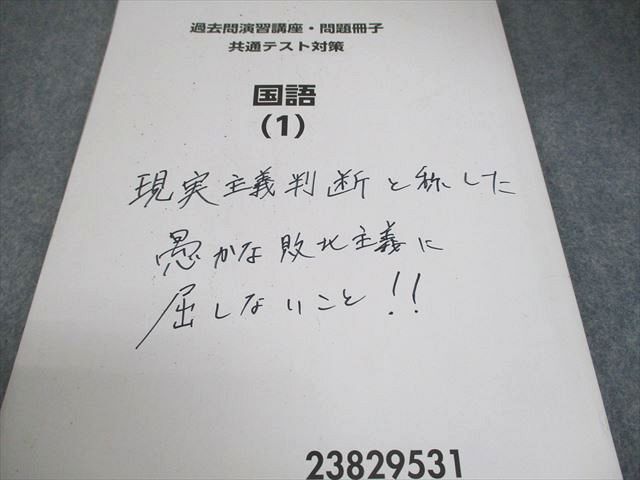 過去問演習講座・問題冊子
共通テスト対策
国語
(1)
現実主義判断と称した
愚かな敗北主義に
屈しないこと!!
23829531